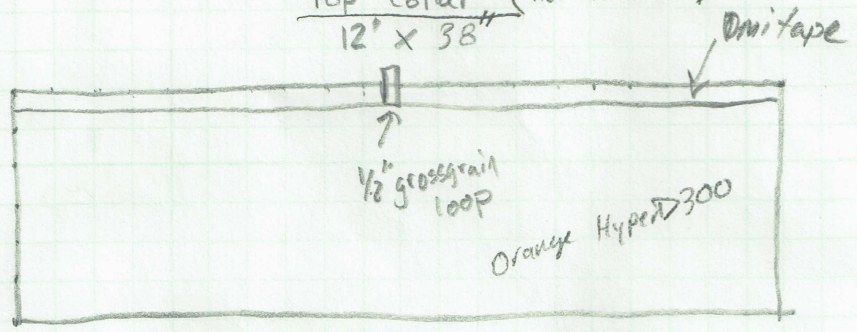 Top Collar
12" x 38"
Omitape
1/2" grossgrain
loop
Orange HyperD300